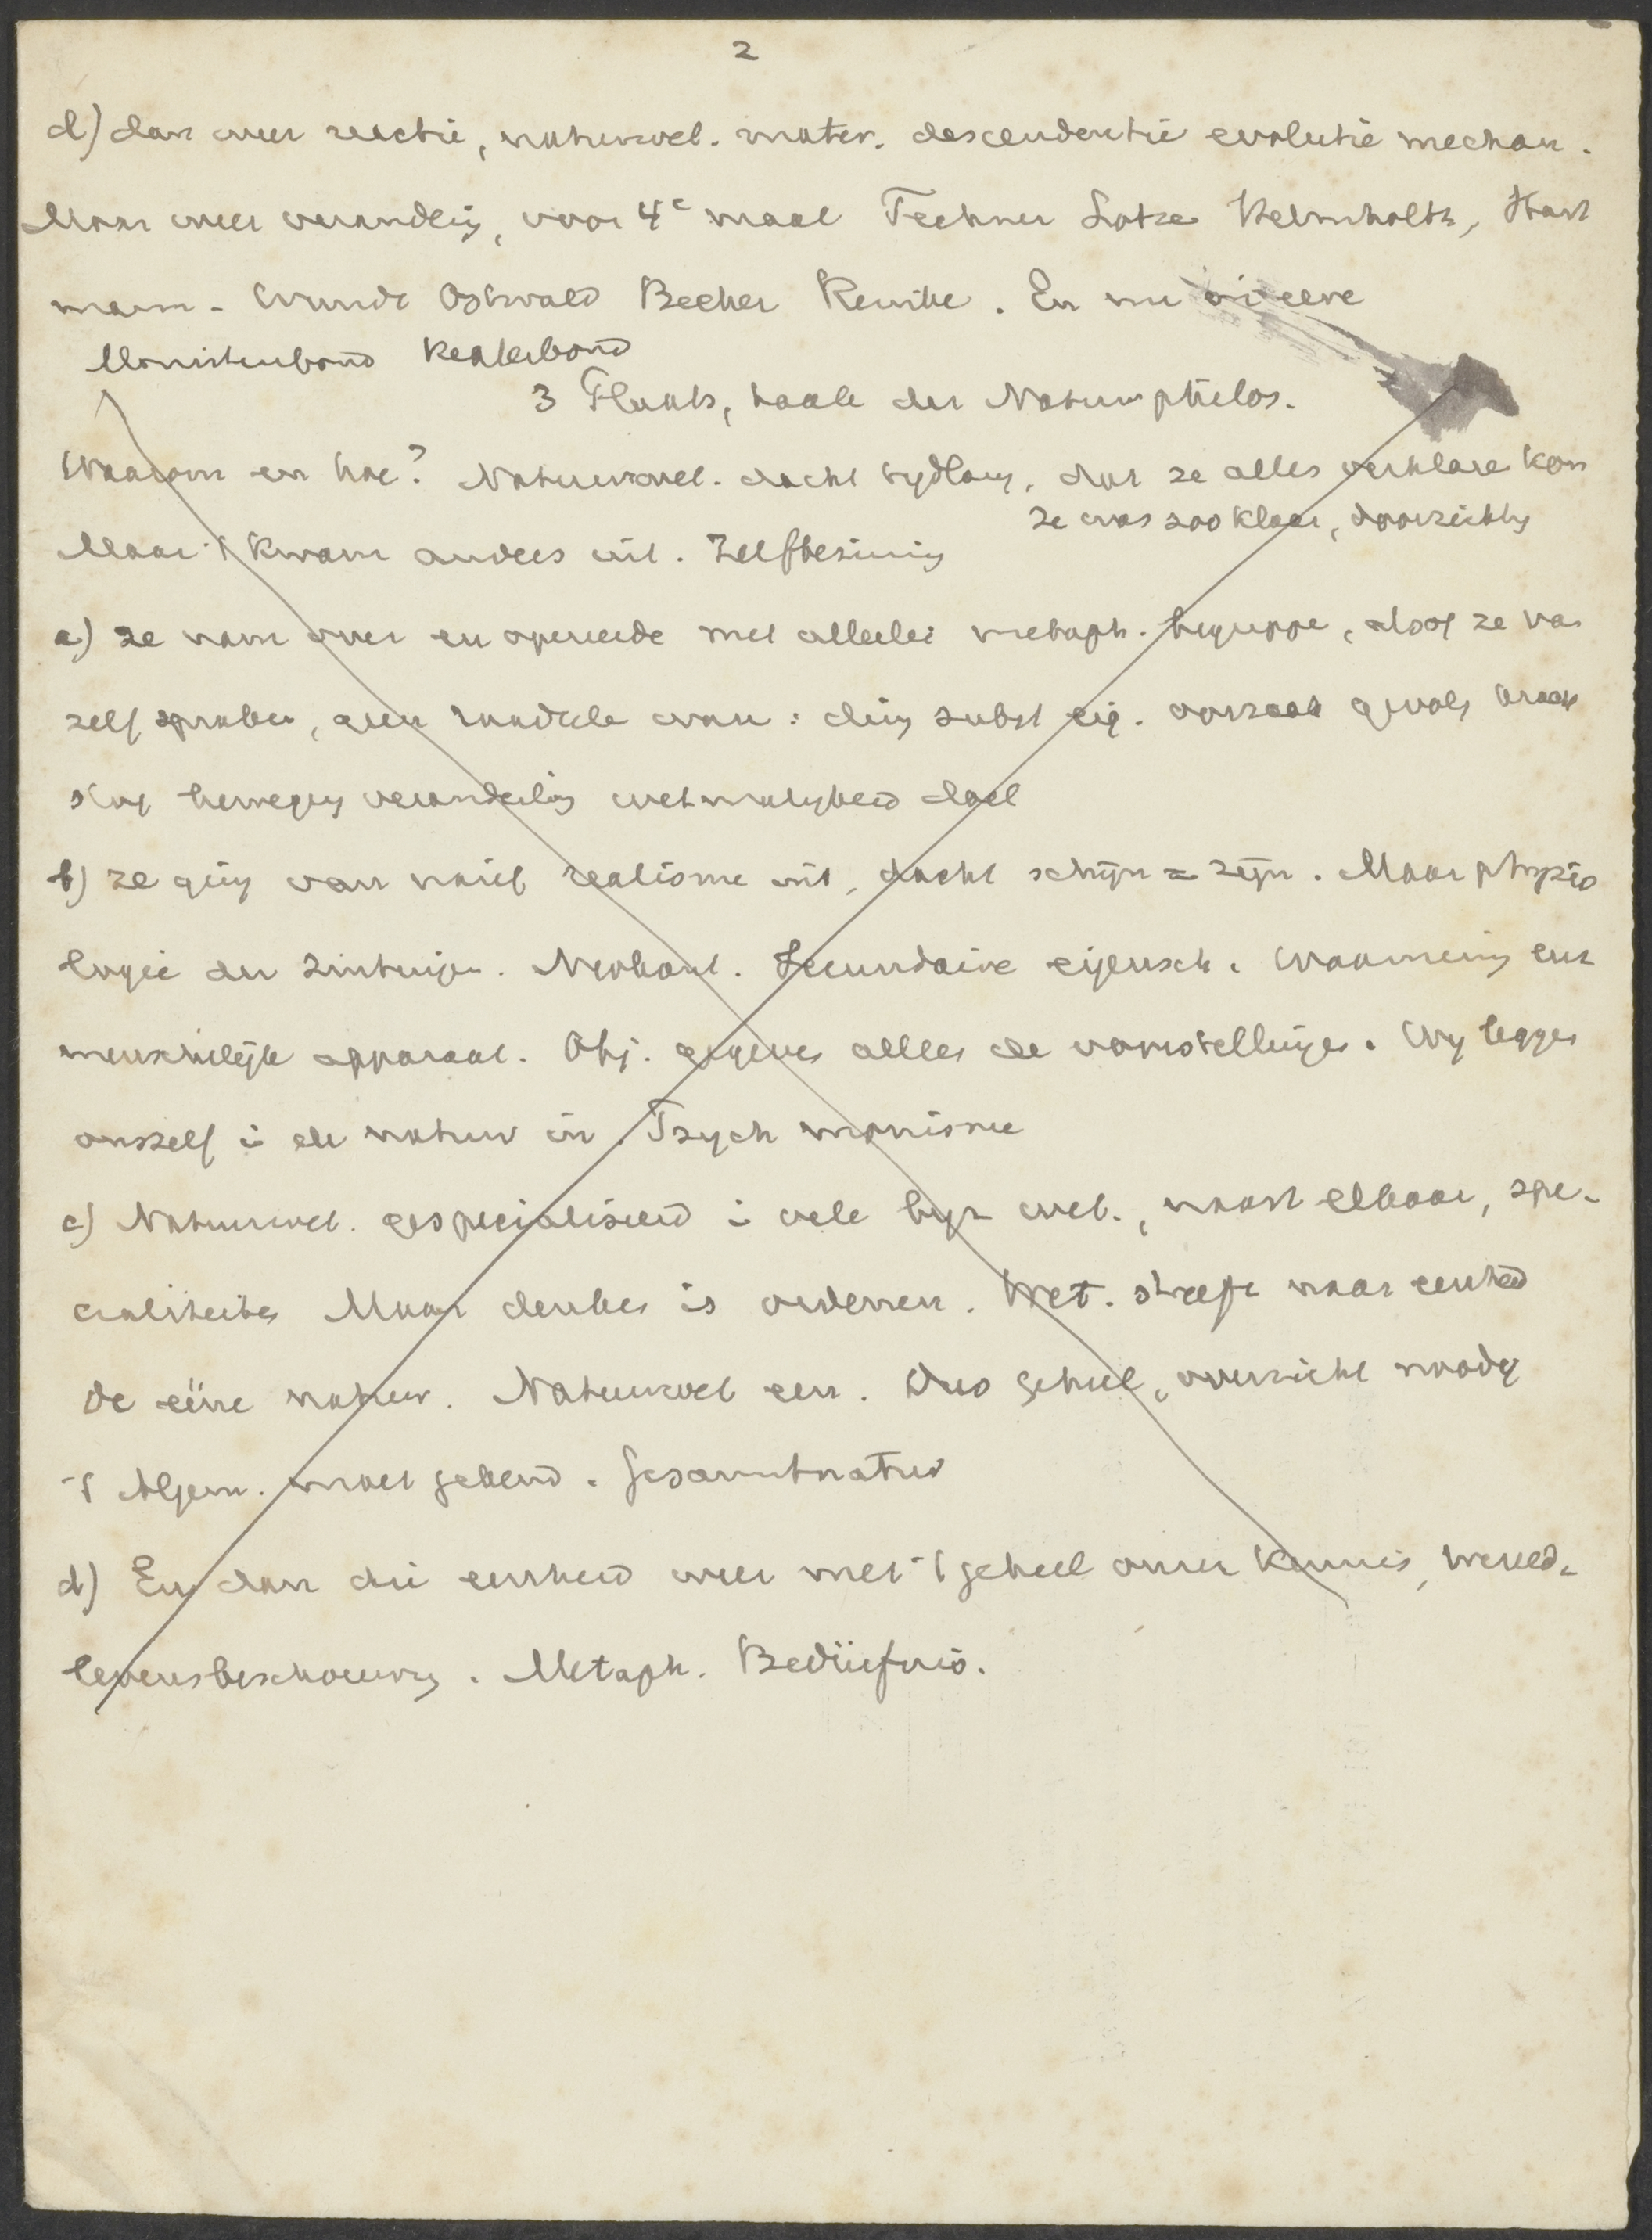 2
d) dan weer reactie, natuurwet. mater. descendentie evolutie mechan.
Maar weer verandeig, voor 4e maal Fechner Lotze Helmholtz, Hart
mann - Wundt Ostwald Becher Reinke. En nu
Monistenbond Keplerbond
3 Plaats, taak der Natuurphilos.
Waarom en hoe? Natuurwet. dacht tydlang, dat ze alles verklare kon
ze was zoo klaar, doorzichtig
Maar 't kwam anders uit. Zelfbezinnig
a) ze nam over en opereerde met allerlei metaph. begrippe, alsof ze van
zelf sprake, geen raadsele ware: ding subst eig. oorzaak gevolg kracht
stof beweging veranderlig wetmatigheid doel
b) ze ging van naief realisme uit, dacht schijn = zijn. Maar physio
logie der zintuigen. Neokant. Secundaire eigensch. Waarneming enz
menschelijk apparaat. Obj. gegeves alles de voorstellinges. Wy legges
onszelf i de natuur in. Psych monisme
c) Natuurwet. gespecialiseerd i vele byz wet., naast elkaar, spe-
cialiteites Maar denkes is ordenen. Wet. streeft naar eenheid
De eëne natuur. Natuurwet een. Dus geheel, overzicht noodig
't Algem. moet gekend. Gesamtnatur
d) En dan die eenheid weer met 't geheel onzer kennis, wereld-
levensbeschouwing. Metaph. Bedürfnis.